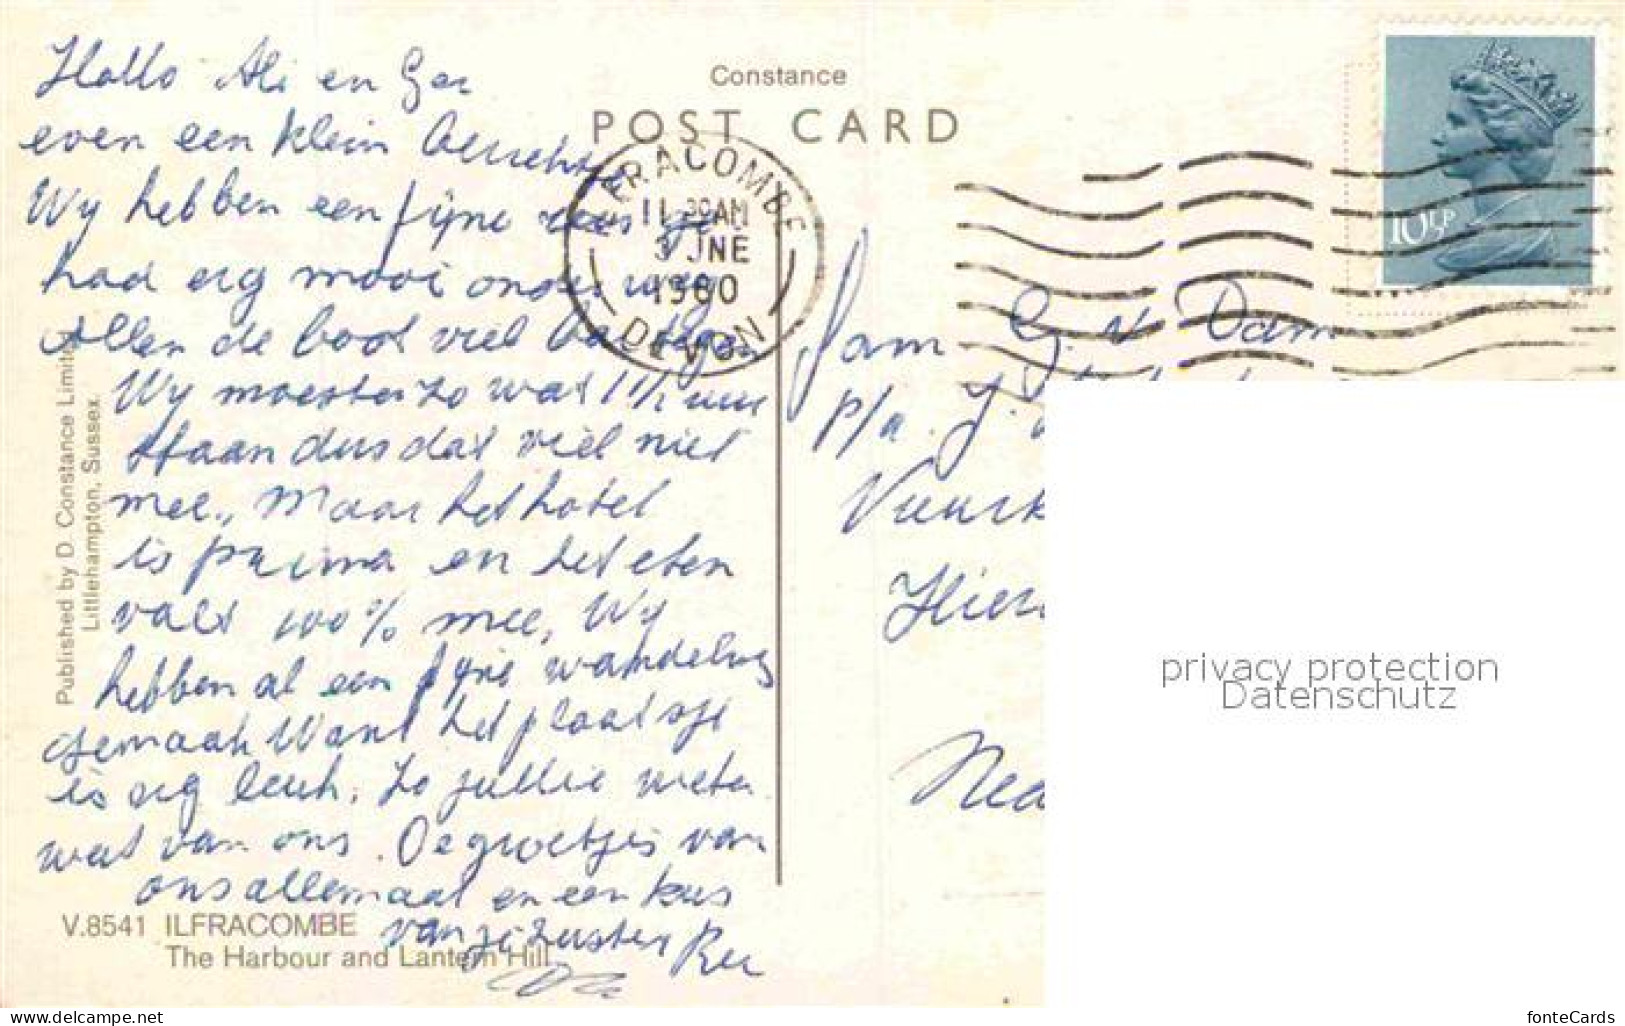 Constance
POST CARD
ILFRACOMBE
11 30AM
3 JNE
1980
DEVON
10½P
Hallo Ali en Ger
even een klein berichtje
Wy hebben een fyne reis ge
had erg mooi onder weg
Allen de boot viel
Wy moesten zo wat 1½ uur
staan dus dat viel niet
mee., Maar het hotel
is prima en het eten
valt 100% mee, Wy
hebben al een fyne wandeling
gemaak Want het plaatsje
is erg leuk. Zo jullie weten
wat van ons. De groetjes van
ons allemaal en een kus
van je zuster Ree
Fam G. v. Dam
p/a. J.
Vuurk
Hier
Ned
Published by D. Constance Limited
Littlehampton, Sussex.
V.8541 ILFRACOMBE
The Harbour and Lantern Hill
privacy protection
Datenschutz
www.delcampe.net
fonteCards